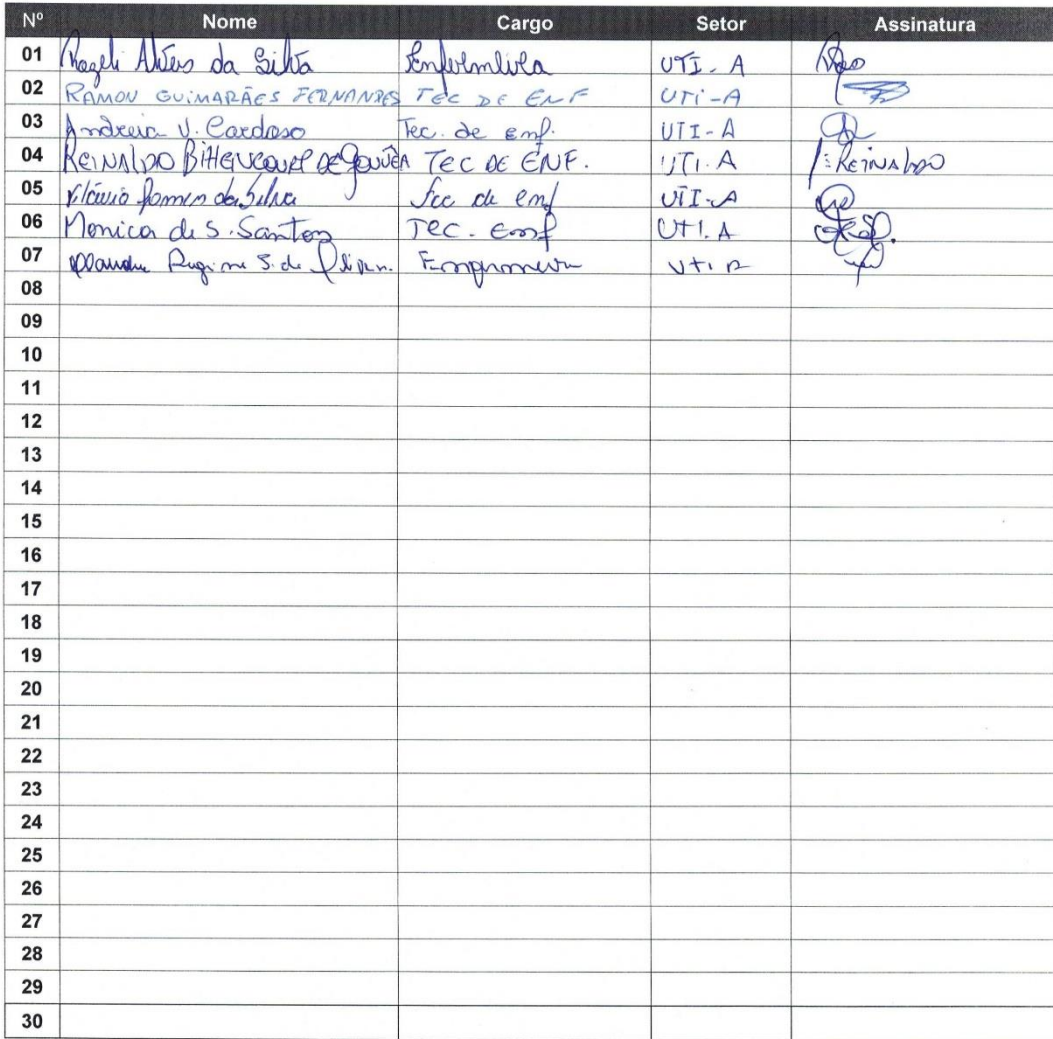 Nº Nome Cargo Setor Assinatura
01 Rogeli Alves da Silva Enfermeira UTI-A
02 RAMON GUIMARÃES FERNANDES TEC DE ENF UTI-A
03 Andreia V. Cardoso Tec. de enf. UTI-A
04 REINALDO DE GOUVÊA TEC DE ENF. UTI.A REINALDO
05 da Silva Tec de enf UTI-A
06 Monica de S. Santos TEC. Enf UTI.A
07 Regina S. de Enfermeira UTI
08
09
10
11
12
13
14
15
16
17
18
19
20
21
22
23
24
25
26
27
28
29
30